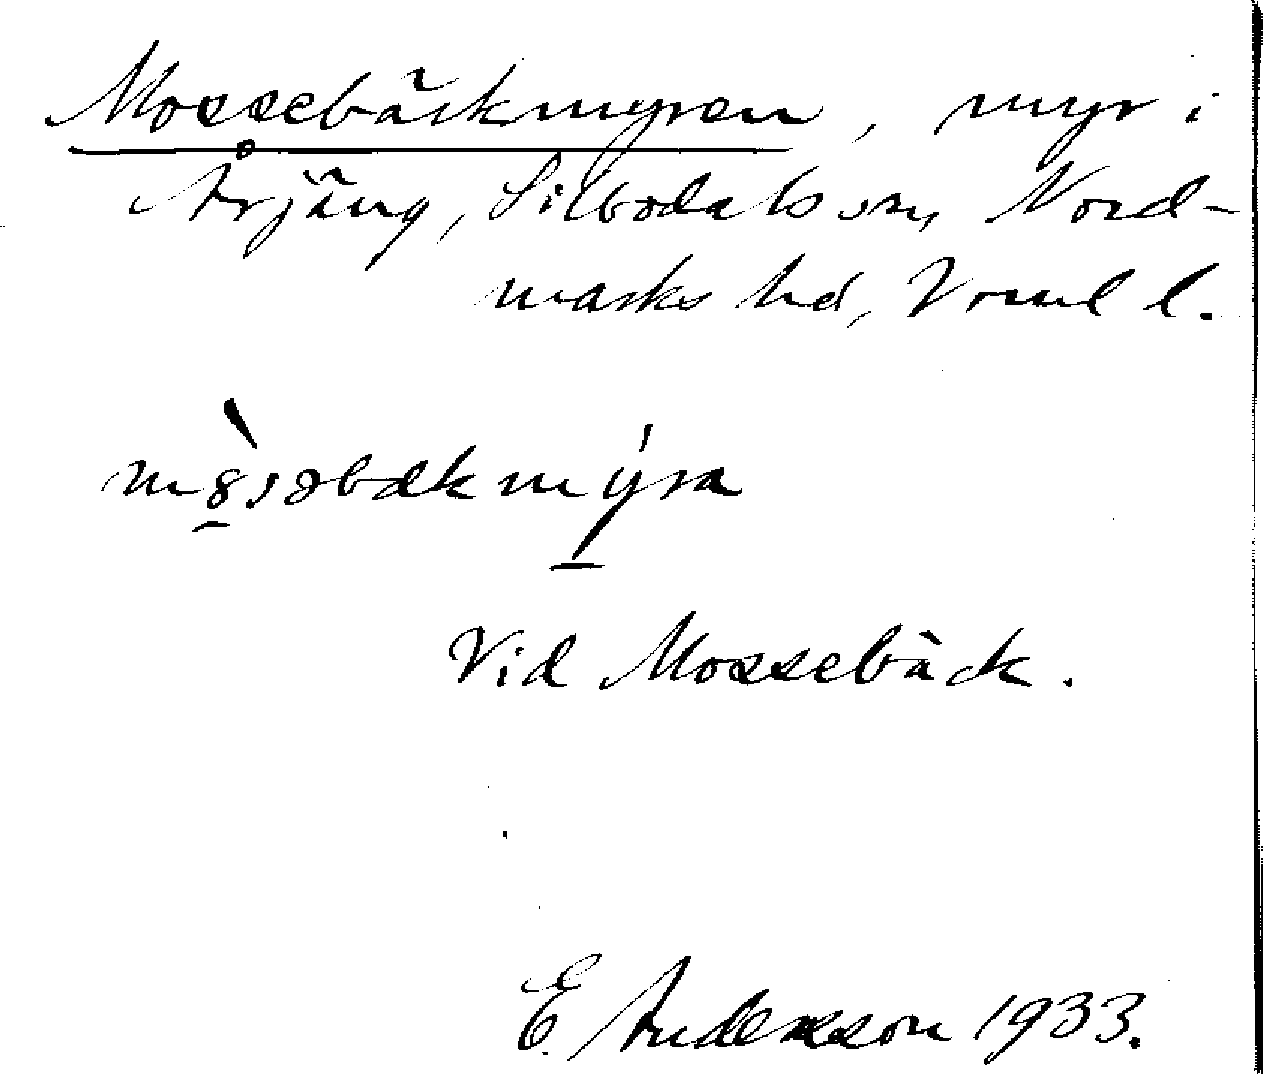 Mossebäckmyren, myr i
Årjäng, Silbodals sn, Nord-
marks hd, Vrml l.
Vid Mossebäck.
E. Andersson 1933.